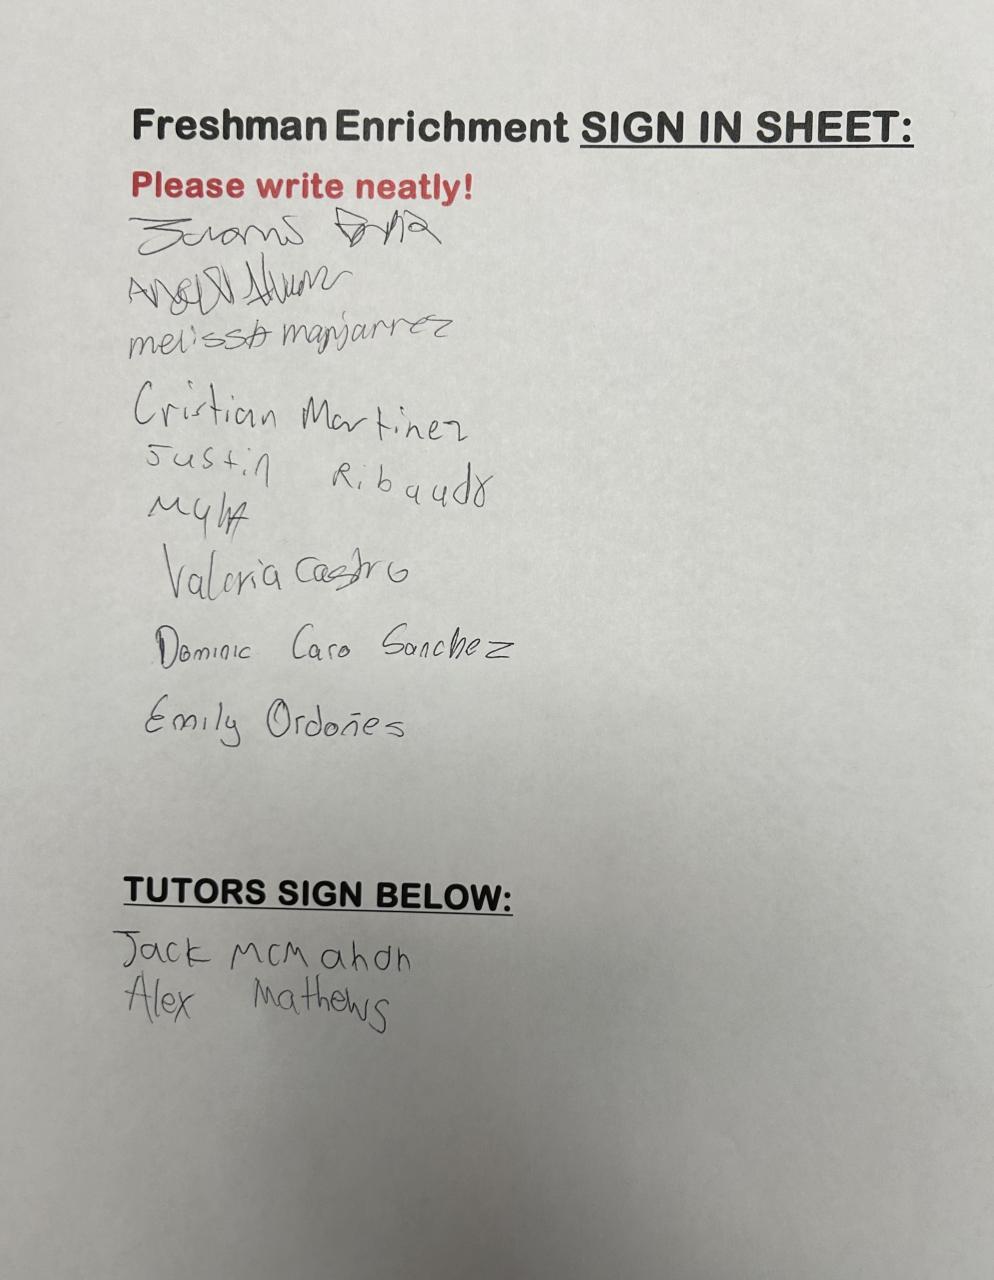 Freshman Enrichment SIGN IN SHEET:
Please write neatly!
melissa manjarrez
Cristian Martinez
Justin Ribaudo
Myla
Valeria Castro
Dominic Caro Sanchez
Emily Ordoñes
TUTORS SIGN BELOW:
Jack McMahon
Alex Mathews